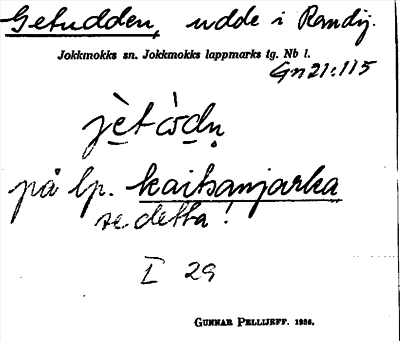 Getudden, udde i Randij.
Jokkmokks sn. Jokkmokks lappmarks tg. Nb l.
Gn21:115
jèt ò̀dn̥
på lp. kaitsanjarka
se detta!
I 29
GUNNAR PELLIJEFF. 1986.